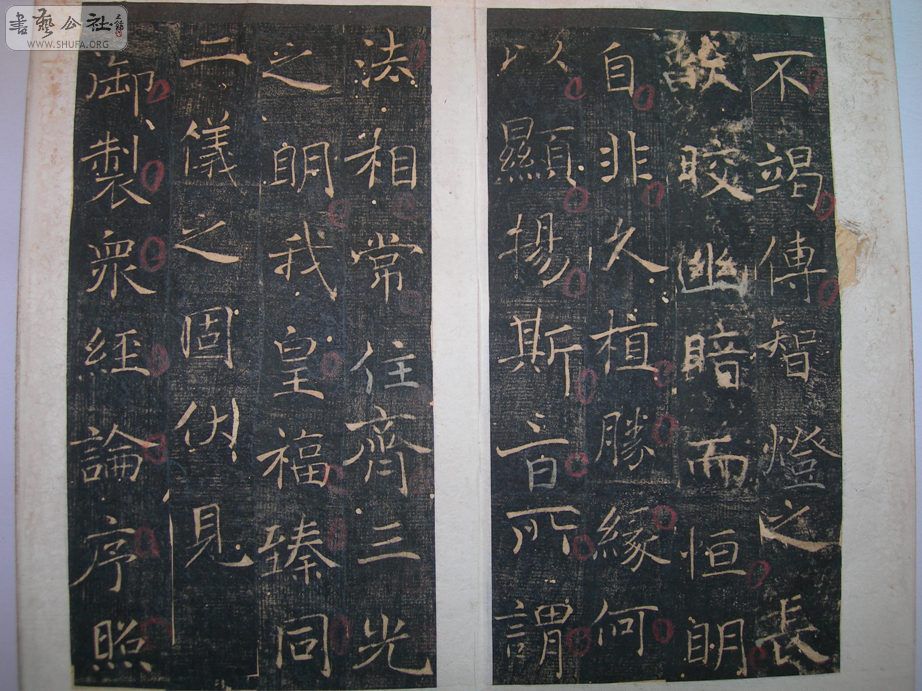 書藝公社
WWW.SHUFA.ORG
不竭傳智燈之長
皎幽暗而恒朗
自非久植勝緣何
以顯揚斯旨所謂
法相常住齊三光
之明我皇福臻同
二儀之固伏見
御製衆經論序照